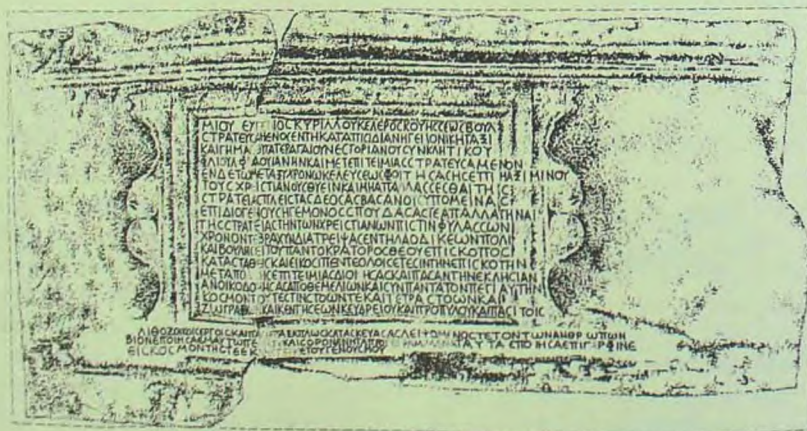 ΜΙΟΥ ΕΥ ΙΟϹ ΚΥΡΙΛΛΟΥ ΚΕΛΕΡΟϹ ΚΟΥΗϹϹΕΩϹ ΒΟΥΛ
ϹΤΡΑΤΕΥϹ ΜΕΝΟϹ ΕΝ ΤΗ ΚΑΤΑ ΠΙϹΙΔΙΑΝ ΗΓΕΜΟΝΙΚΗ ΤΑΞΙ
ΚΑΙ ΓΗΜΑ ΑΤΕΡΑ ΓΑΙΟΥ ΝΕϹΤΟΡΙΑΝΟΥ ϹΥΝΚΛΗΤΙΚΟΥ
ΦΛ ΙΟΥΛ ΦΛΑΟΥΙΑΝΗΝ ΚΑΙ ΜΕΤ ΕΠΙΤΕΙΜΙΑϹ ϹΤΡΑΤΕΥϹΑΜΕΝΟΝ
ΕΝ ΔΕ ΤΩ ΜΕΤΑΞΥ ΧΡΟΝΩ ΚΕΛΕΥϹΕΩϹ ΦΟΙΤΗϹΑϹΗϹ ΕΠΙ ΜΑΞΙΜΙΝΟΥ
ΤΟΥϹ ΧΡΙϹΤΙΑΝΟΥϹ ΘΥΕΙΝ ΚΑΙ ΜΗ ΑΠΑΛΑϹϹΕϹΘΑΙ ΤΗϹ
ϹΤΡΑΤΕΙΑϹ ΠΛΕΙϹΤΑϹ ΔΕ ΟϹΑϹ ΒΑϹΑΝΟΙϹ ΥΠΟΜΕΙΝΑϹ
ΕΠΙ ΔΙΟΓΕΝΟΥϹ ΗΓΕΜΟΝΟϹ ϹΠΟΥΔΑϹΑϹ ΤΕ ΑΠΑΛΛΑΓΗΝΑΙ
ΤΗϹ ϹΤΡΑΤΕΙΑϹ ΤΗΝ ΤΩΝ ΧΡΕΙϹΤΙΑΝΩΝ ΠΙϹΤΙΝ ΦΥΛΑϹϹΩΝ
ΧΡΟΝΟΝ ΤΕ ΒΡΑΧΥΝ ΔΙΑΤΡΕΙΨΑϹ ΕΝ ΤΗ ΛΑΟΔΙΚΕΩΝ ΠΟΛΙ
ΚΑΙ ΒΟΥΛΗϹΕΙ ΤΟΥ ΠΑΝΤΟΚΡΑΤΟΡΟϹ ΘΕΟΥ ΕΠΙϹΚΟΠΟϹ
ΚΑΤΑϹΤΑΘ Ϲ ΚΑΙ ΕΙΚΟϹΙ ΠΕΝΤΕ ΟΛΟΙϹ ΕΤΕϹΙΝ ΤΗΝ ΕΠΙϹΚΟΠΗΝ
ΜΕΤΑ ΠΟ ΗϹ ΕΠΙΤΕΙΜΙΑϹ ΔΙΟΙΚΗϹΑϹ ΚΑΙ ΠΑϹΑΝ ΤΗΝ ΕΚΛΗϹΙΑΝ
ΑΝΟΙΚΟΔΟ ΗϹΑϹ ΑΠΟ ΘΕΜΕΛΙΩΝ ΚΑΙ ϹΥΝΠΑΝΤΑ ΤΟΝ ΠΕΡΙ ΑΥΤΗΝ
ΚΟϹΜΟΝ ΤΟΥΤ ΕϹΤΙΝ ϹΤΟΩΝ ΤΕ ΚΑΙ ΤΕΤΡΑϹΤΟΩΝ ΚΑΙ
ΖΩΓΡΑΦΙ ΚΑΙ ΚΕΝΤΗϹΕΩΝ ΚΕ ΥΔΡΕΙΟΥ ΚΑΙ ΠΡΟΠΥΛΟΥ ΚΑΙ ΠΑϹΙ ΤΟΙϹ
ΛΙΘΟΞΟΙΚΟΙϹ ΕΡΓΟΙϹ ΚΑΙ ΠΑ ΑΠΛΩϹ ΚΑΤΑϹΚΕΥΑϹΑϹ ΛΕΙΨΟΜΕΝΟϹ ΤΕ ΤΟΝ ΤΩΝ ΑΝΘΡΩΠΩΝ
ΒΙΟΝ ΕΠΟΙΗϹΑ ΕΜΑΥΤΩ ΠΕ ΚΑΙ ϹΟΡΟΝ ΕΠΟΙΗϹΑ ΕΠΙΓΡ
ΕΙϹ ΚΟϹΜΟΝ ΤΗϹ ΤΕ ΕΚ ΤΟΥ ΓΕΝΟΥϹ ΜΟΥ